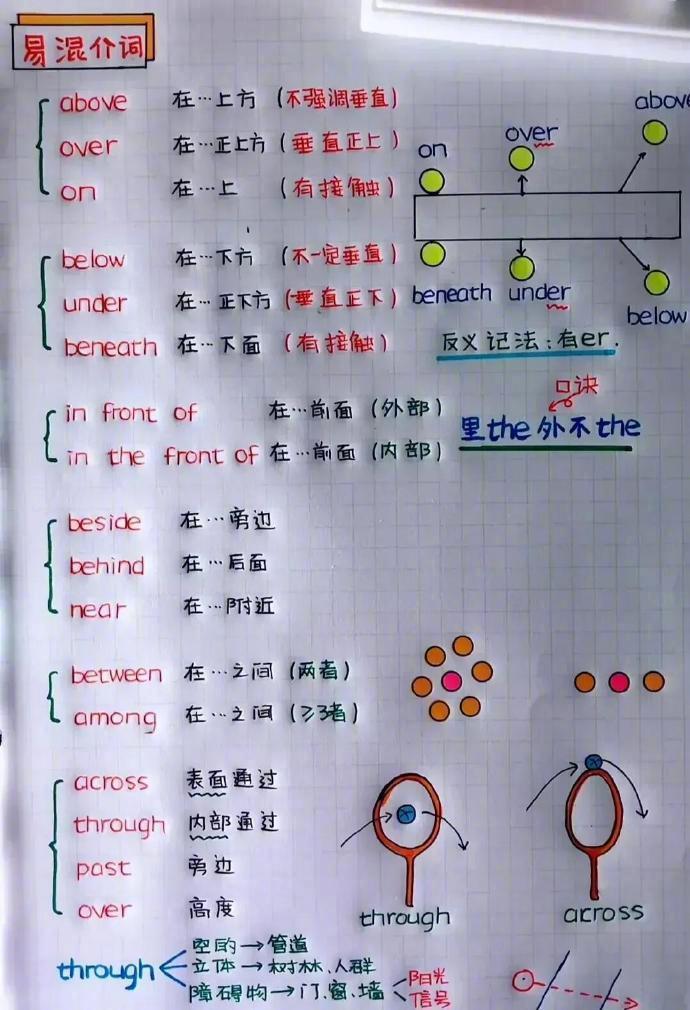 易混介词
above 在…上方 (不强调垂直)
over 在…正上方 (垂直正上)
on 在…上 (有接触)
on
over
above
below 在…下方 (不一定垂直)
under 在…正下方 (垂直正下)
beneath 在…下面 (有接触)
beneath under
below
反义记法:有er.
in front of 在…前面 (外部)
in the front of 在…前面 (内部)
口诀
里the 外不the
beside 在…旁边
behind 在…后面
near 在…附近
between 在…之间 (两者)
among 在…之间 (≥3者)
across 表面通过
through 内部通过
past 旁边
over 高度
through
across
through
空的→管道
立体→树林、人群
障碍物→门、窗、墙
阳光
信号